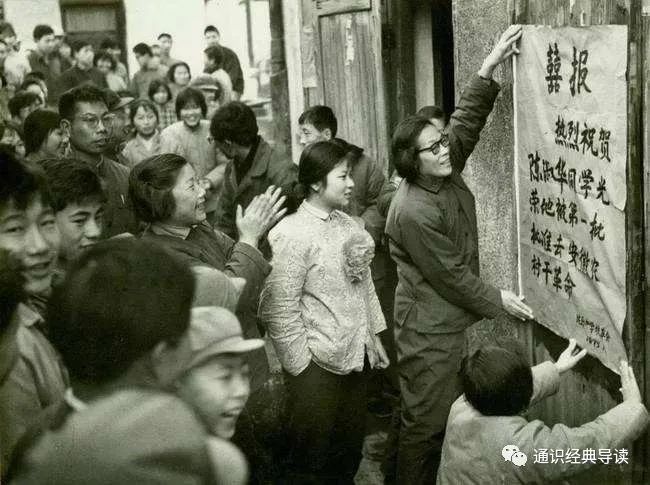 囍报
热烈祝贺
陈淑华同学光
荣地被第一批
批准去安徽农
村干革命
通识经典导读